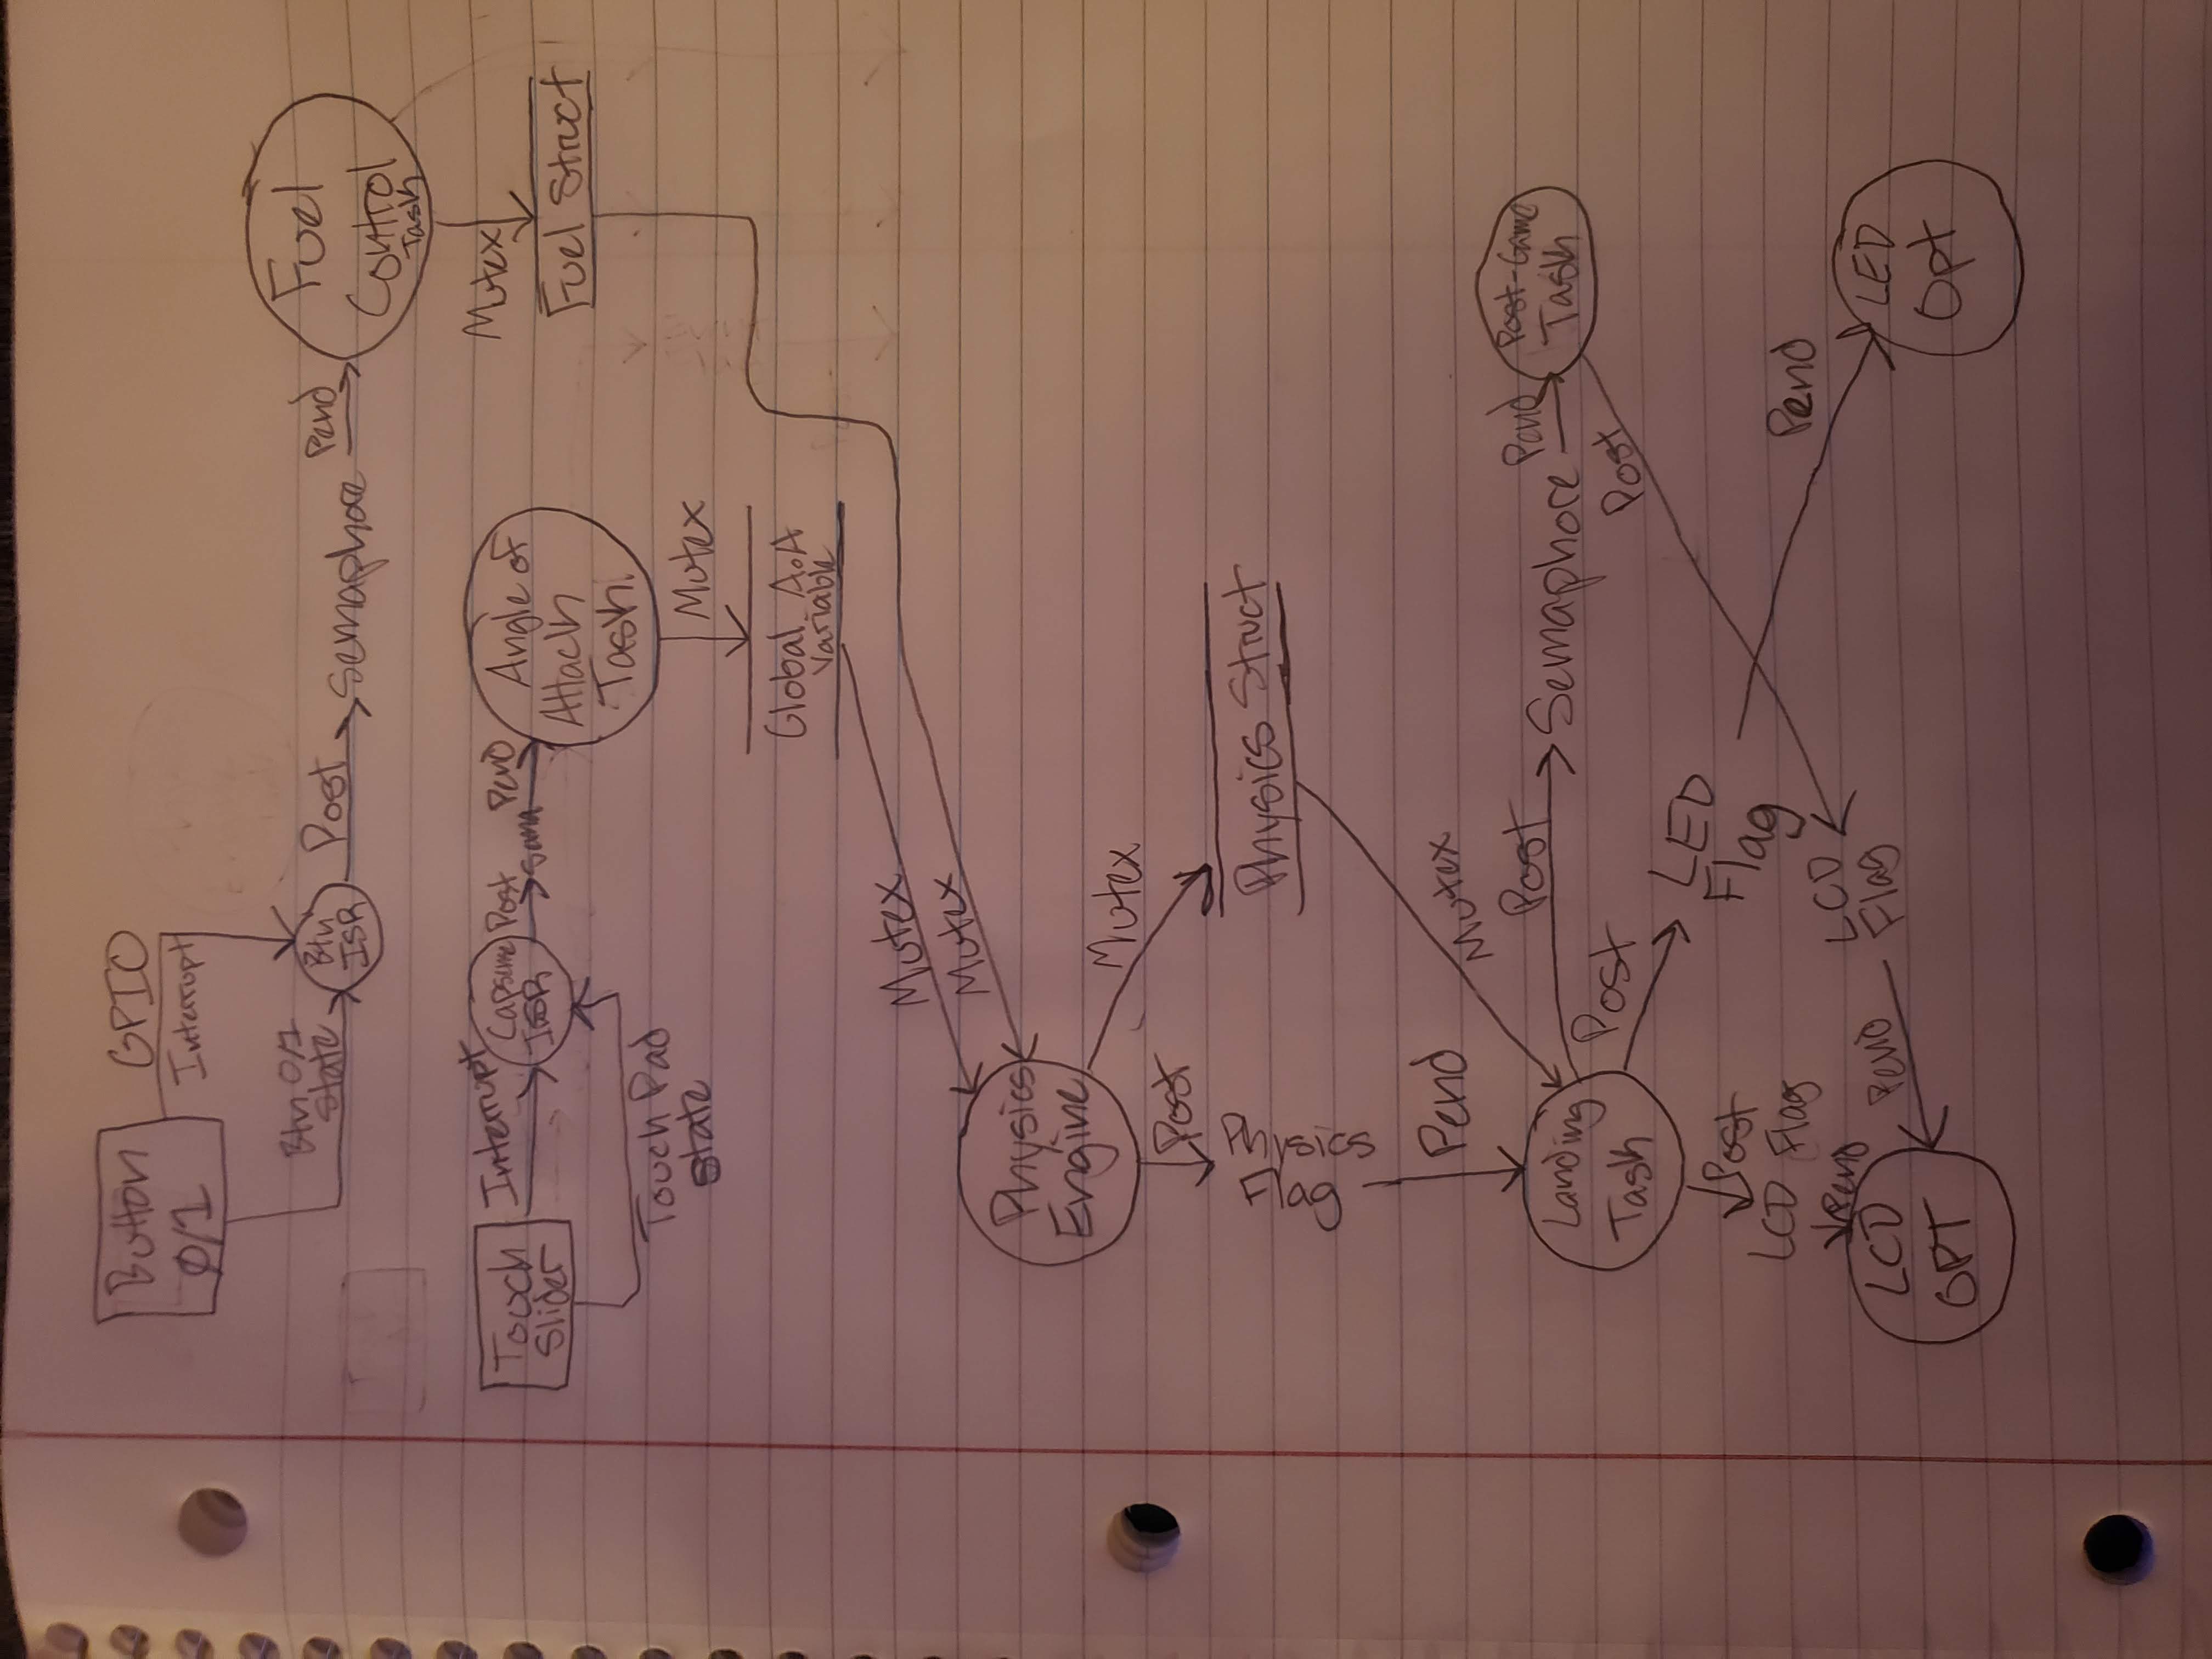 Button
0/1
GPIO
Interrupt
Btn 0/1
State
Btn
ISR
Post
Semaphore
Pend
Fuel
Control
Task
Mutex
Fuel Struct
Touch
Slider
Interrupt
Capsense
ISR
Post
Sema
Pend
Angle of
Attack
Task
Touch Pad
state
Mutex
Global AoA
variable
Mutex
Mutex
Physics
Engine
Mutex
Post
Physics
Flag
Physics Struct
Pend
Mutex
Landing
Task
Post
Semaphore
Pend
Post-Game
Task
Post
LED
Flag
Post
Post
LCD Flag
Pend
LCD
OPT
Pend
LCD
Flag
Pend
LED
Opt